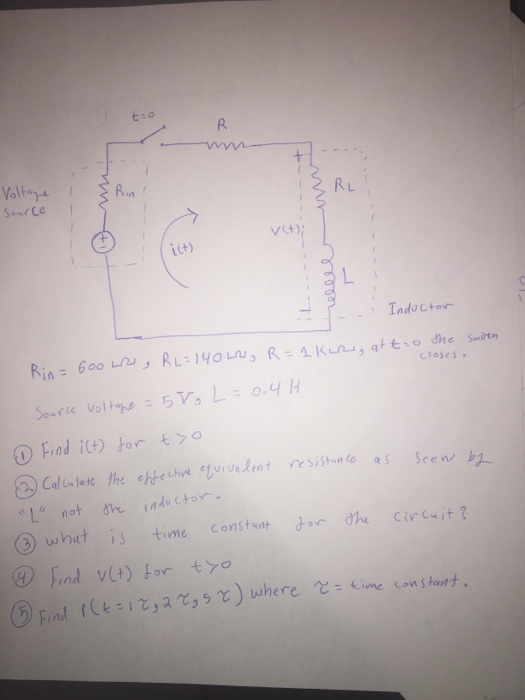 t=0
R
+
Voltage
Source
Rin
RL
i(t)
v(t)
L
+
-
-
Inductor
Rin = 600 Ω, RL = 140 Ω, R = 1 KΩ, at t=0 the
closes.
Source Voltage = 5 V, L = 0.4 H
① Find i(t) for t>0
② Calculate the effective equivalent resistance as seen by
"L" not the inductor.
③ what is time constant for the circuit?
④ Find v(t) for t>0
⑤ Find i(t = 1τ, 2τ, 5τ) where τ = time constant.